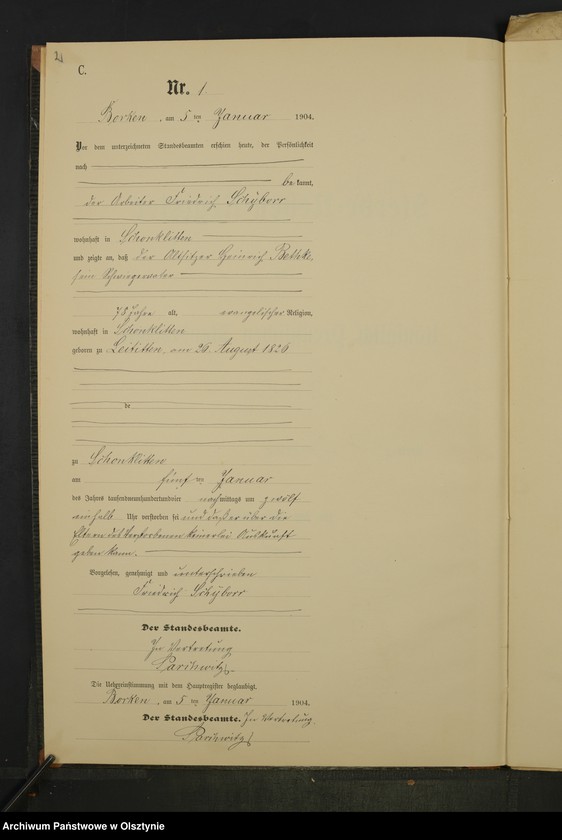 C.
Nr. 1
Borken, am 5 ten Januar 1904.
Vor dem unterzeichneten Standesbeamten erschien heute, der Persönlichkeit
nach
be kannt,
der Arbeiter Friedrich Schÿborr
wohnhaft in Schönklitten
und zeigte an, daß der Altsitzer Heinrich Bethke,
sein Schwiegervater
78 Jahre alt, evangelischer Religion,
wohnhaft in Schönklitten
geboren zu am 26. August 1826
de
zu Schönklitten
am fünf ten Januar
des Jahres tausendneunhundertundvier nachmittags um zwölf
einhalb Uhr verstorben sei und daß er über die
Eltern des Verstorbenen keinerlei Auskunft
geben kann.
Vorgelesen, genehmigt und unterschrieben
Friedrich Schÿborr
Der Standesbeamte.
In Vertretung
Die Uebereinstimmung mit dem Hauptregister beglaubigt.
Borken, am 5 ten Januar 1904.
Der Standesbeamte. In Vertretung
Archiwum Państwowe w Olsztynie